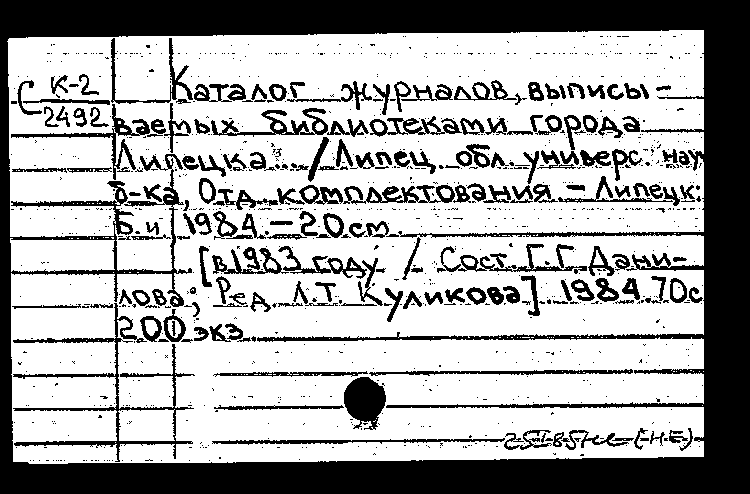 С К-2
2492
Каталог журналов, выписы-
ваемых библиотеками города
Липецка... / Липец. обл. универс. нау
б-ка, Отд. комплектования. – Липецк:
Б.и. 1984. – 20 см.
[в 1983 году / Сост. Г.Г. Дани-
лова; Ред. Л.Т. Куликова]. 1984. 70с
200 экз.
(Н.Е.)